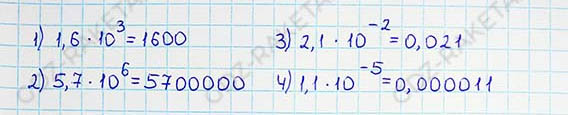 1) 1,6 · 10³ = 1600
3) 2,1 · 10⁻² = 0,021
2) 5,7 · 10⁶ = 5700000
4) 1,1 · 10⁻⁵ = 0,000011